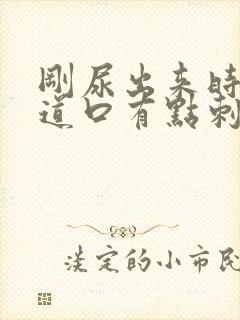 剛尿出来時
道口有點刺
淡定的小市民